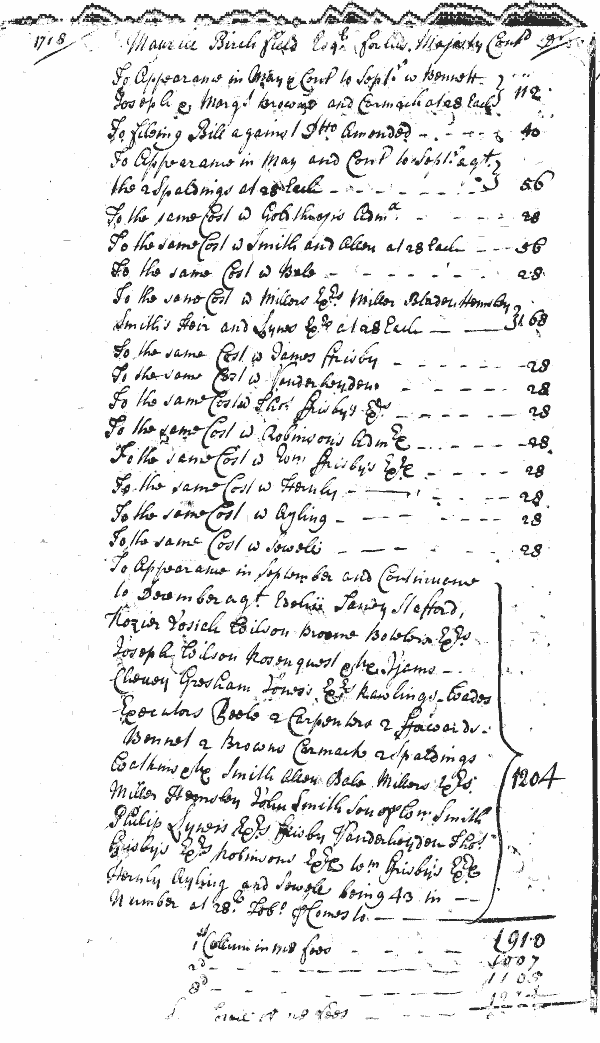 1718 Maurice Birchfield Esqr. for his Majesty Contd Dr
To Appearance in May & Cont to Septr. w Bennett
Joseph & Margt Browne and Cormack at 28 Each 112
To fileing Bill against Ditto Amended - - - - 40
To Appearance in May and Cont to Septr. agt.
the 2 Spaldings at 28 Each - - - - - - 56
To the same Cost w Goldthwrps Adm - - - 28
To the same Cost w Smith and Allen at 28 Each - - - 56
To the same Cost w Bale - - - - - - 28
To the same Cost w Millers Exrs Miller Bladen Hemsley
Smith's Heir and Lynes Exrs at 28 Each - - 168
To the same Cost w James Frisby - - - - - 28
To the same Cost w Vanderheyden - - - - 28
To the same Cost w Thos. Frisby's Exrs - - - - - 28
To the same Cost w Robinsons AdmX - - - - 28
To the same Cost w Wm. Frisby's ExX - - - - 28
To the same Cost w Hernly - - - - 28
To the same Cost w Ayling - - - - - - 28
To the same Cost w Sewell - - - - - 28
To Appearance in September and Continuance
to December agt. Sandy Stafford,
Kozier Josiah Wilson Broome Bowlers Exrs
Joseph Wilson Rosenquest & Ux Ijams -
Chevey Gresham Jones's Exrs Rawlings Coades
Executors Beele 2 Carpenters 2
Bennet 2 Browns Cormack 2 Spaldings
Watkins & Ux Smith Allen Bale Millers Exrs
Miller Hemsley John Smith son of Wm. Smith
Philip Lynes's Exrs Frisby Vanderheyden Thos.
Frisby's Exrs Robinsons ExX Wm Frisby's ExX
Hernly Ayling and Sewell being 43 in - -
Number at 28 Tobo. Comes to - - 1204
1st Collum in 1718 fees - - - 1910
2d - - - - - - 1007
3d - - - - - - 1108